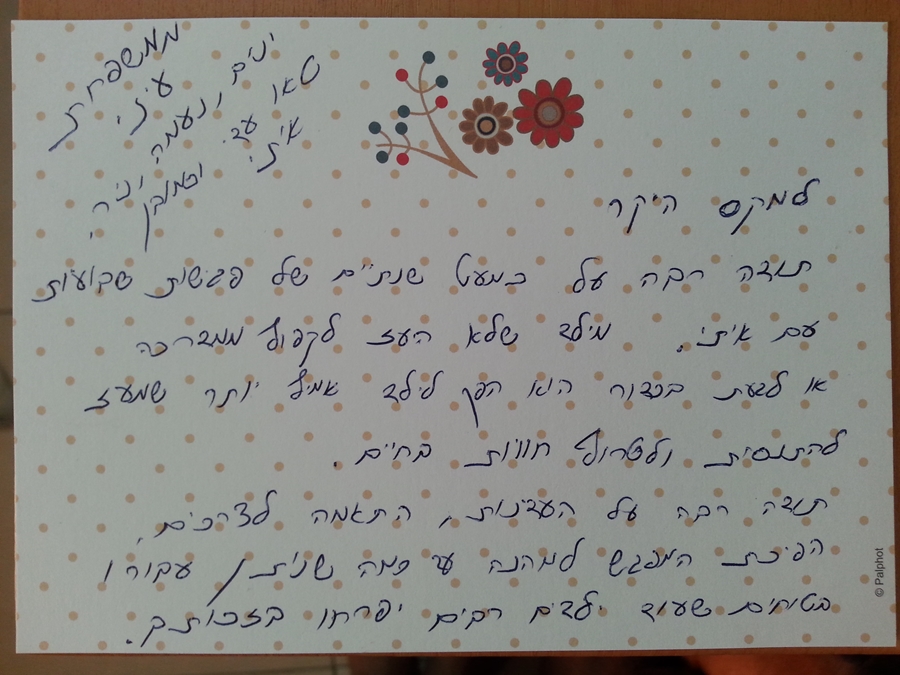 למקס היקר
תודה רבה על כמעט שנתיים של פגישות שבועיות
עם איתי. מילד שלא העז לקפוץ ממדרכה
או לגעת בכדור הוא הפך לילד אמיץ יותר שמעז
להתנסות ולטרוף חוויות בחיים.
תודה רבה על העדינות, התאמה לצרכים,
הפיכת המפגש למהנה עד כמה שניתן עבורו
בטוחים שעוד ילדים רבים יפרחו בזכותך.
ממשפחת
עיני
ונעמה וניר,
עדי
איתי וכמובן
© Palphot